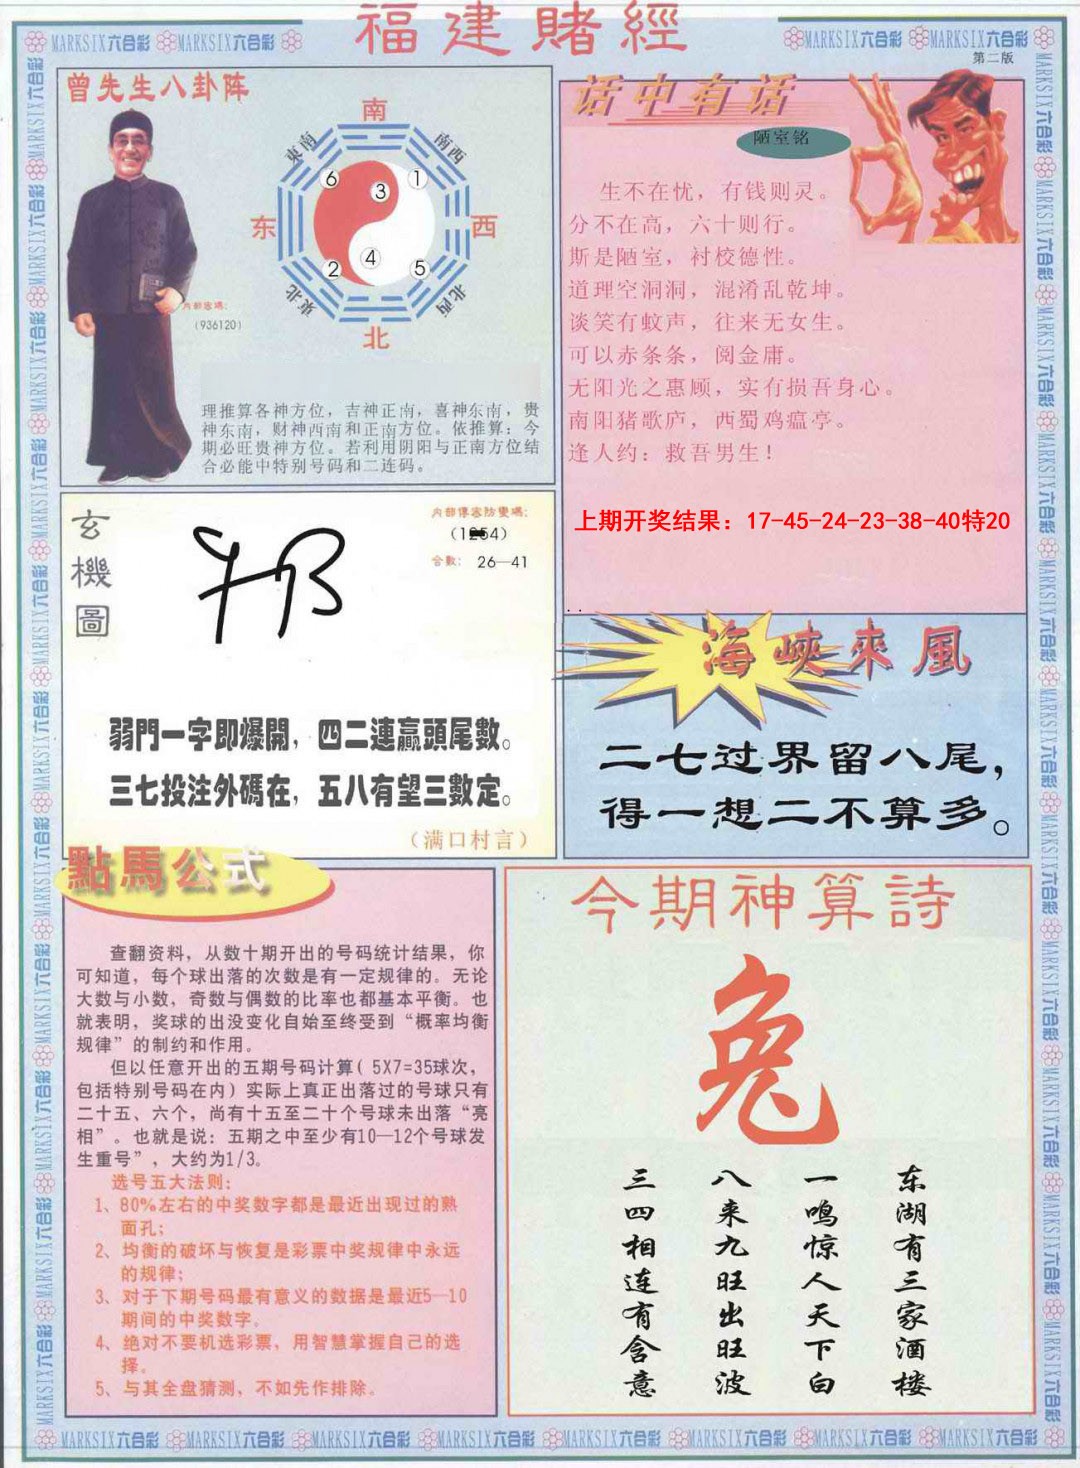 福建賭經
MARKSIX六合彩 MARKSIX六合彩 MARKSIX六合彩 MARKSIX六合彩
第二版
曾先生八卦阵
南
東南
南西
6
3
1
东
西
4
2
5
東北
北西
北
内部密碼：
（936120）
理推算各神方位，吉神正南，喜神东南，贵
神东南，财神西南和正南方位。依推算：今
期必旺贵神方位。若利用阴阳与正南方位结
合必能中特别号码和二连码。
话中有话
陋室铭
生不在忧，有钱则灵。
分不在高，六十则行。
斯是陋室，衬校德性。
道理空洞洞，混淆乱乾坤。
谈笑有蚊声，往来无女生。
可以赤条条，阅金庸。
无阳光之惠顾，实有损吾身心。
南阳猪歌庐，西蜀鸡瘟亭。
逢人约：救吾男生！
上期开奖结果：17-45-24-23-38-40特20
玄機圖
内部傳密防變碼：
合數： 26—41
弱門一字即爆開，四二連贏頭尾數。
三七投注外碼在，五八有望三數定。
（满口村言）
海峽來風
二七过界留八尾，
得一想二不算多。
點馬公式
查翻资料，从数十期开出的号码统计结果，你
可知道，每个球出落的次数是有一定规律的。无论
大数与小数，奇数与偶数的比率也都基本平衡。也
就表明，奖球的出没变化自始至终受到“概率均衡
规律”的制约和作用。
但以任意开出的五期号码计算（5X7=35球次，
包括特别号码在内）实际上真正出落过的号球只有
二十五、六个，尚有十五至二十个号球未出落“亮
相”。也就是说：五期之中至少有10—12个号球发
生重号”，大约为1/3。
选号五大法则：
1、80%左右的中奖数字都是最近出现过的熟
面孔；
2、均衡的破坏与恢复是彩票中奖规律中永远
的规律；
3、对于下期号码最有意义的数据是最近5—10
期间的中奖数字。
4、绝对不要机选彩票，用智慧掌握自己的选
择。
5、与其全盘猜测，不如先作排除。
今期神算詩
兔
东湖有三家酒楼
一鸣惊人天下白
八来九旺出旺波
三四相连有含意
MARKSIX六合彩 MARKSIX六合彩 MARKSIX六合彩 MARKSIX六合彩 MARKSIX六合彩 MARKSIX六合彩 MARKSIX六合彩 MARKSIX六合彩